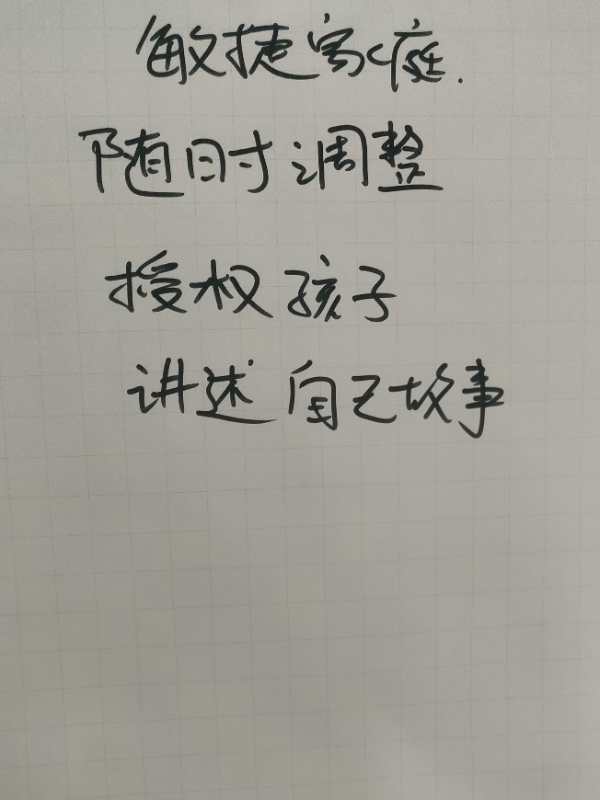 敏捷家庭.
随时调整
授权孩子
讲述自己故事